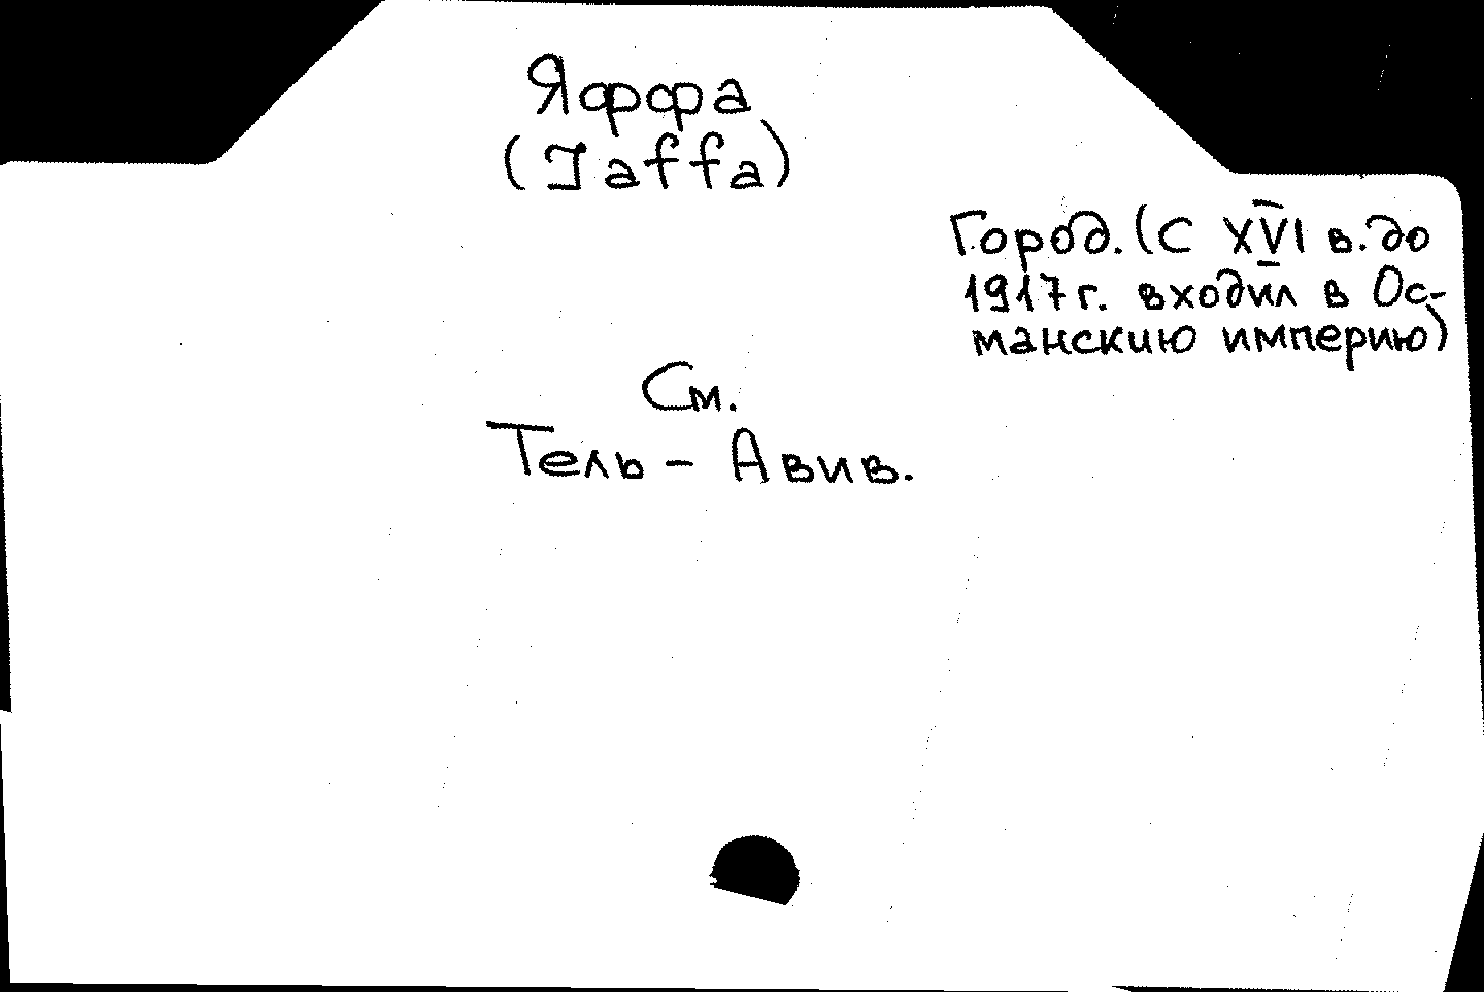 Яффа
(Jaffa)
Город. (С XVI в. до
1917 г. входил в Ос-
манскию империю)
См.
Тель - Авив.